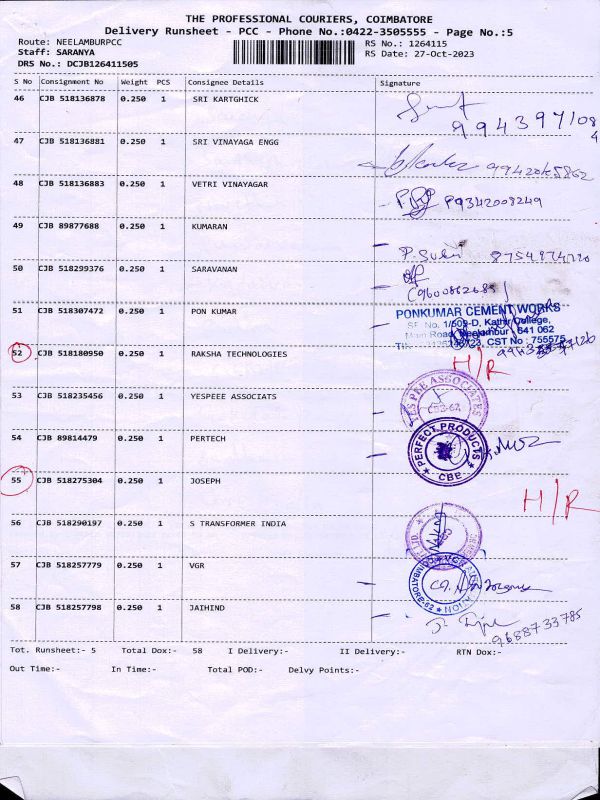 THE PROFESSIONAL COURIERS, COIMBATORE
Delivery Runsheet - PCC - Phone No.:0422-3505555 - Page No.:5
Route: NEELAMBURPCC RS No.: 1264115
Staff: SARANYA RS Date: 27-Oct-2023
DRS No.: DCJB126411505
S No Consignment No Weight PCS Consignee Details Signature
46 CJB 518136878 0.250 1 SRI KARTGHICK
47 CJB 518136881 0.250 1 SRI VINAYAGA ENGG
48 CJB 518136883 0.250 1 VETRI VINAYAGAR P9342008249
49 CJB 89877688 0.250 1 KUMARAN
50 CJB 518299376 0.250 1 SARAVANAN
51 CJB 518307472 0.250 1 PON KUMAR PONKUMAR CEMENT WORKS
SF. No. 1/509-D, Kathir College,
Main Road, Neelambur - 641 062
CST No : 755575
52 CJB 518180950 0.250 1 RAKSHA TECHNOLOGIES H/R
53 CJB 518235456 0.250 1 YESPEEE ASSOCIATS YES PEE ASSOCIATES
54 CJB 89814479 0.250 1 PERTECH PERFECT PRODUCTS
CBE
55 CJB 518275304 0.250 1 JOSEPH H/R
56 CJB 518290197 0.250 1 S TRANSFORMER INDIA
57 CJB 518257779 0.250 1 VGR
58 CJB 518257798 0.250 1 JAIHIND 9688733785
Tot. Runsheet:- 5 Total Dox:- 58 I Delivery:- II Delivery:- RTN Dox:-
Out Time:- In Time:- Total POD:- Delvy Points:-